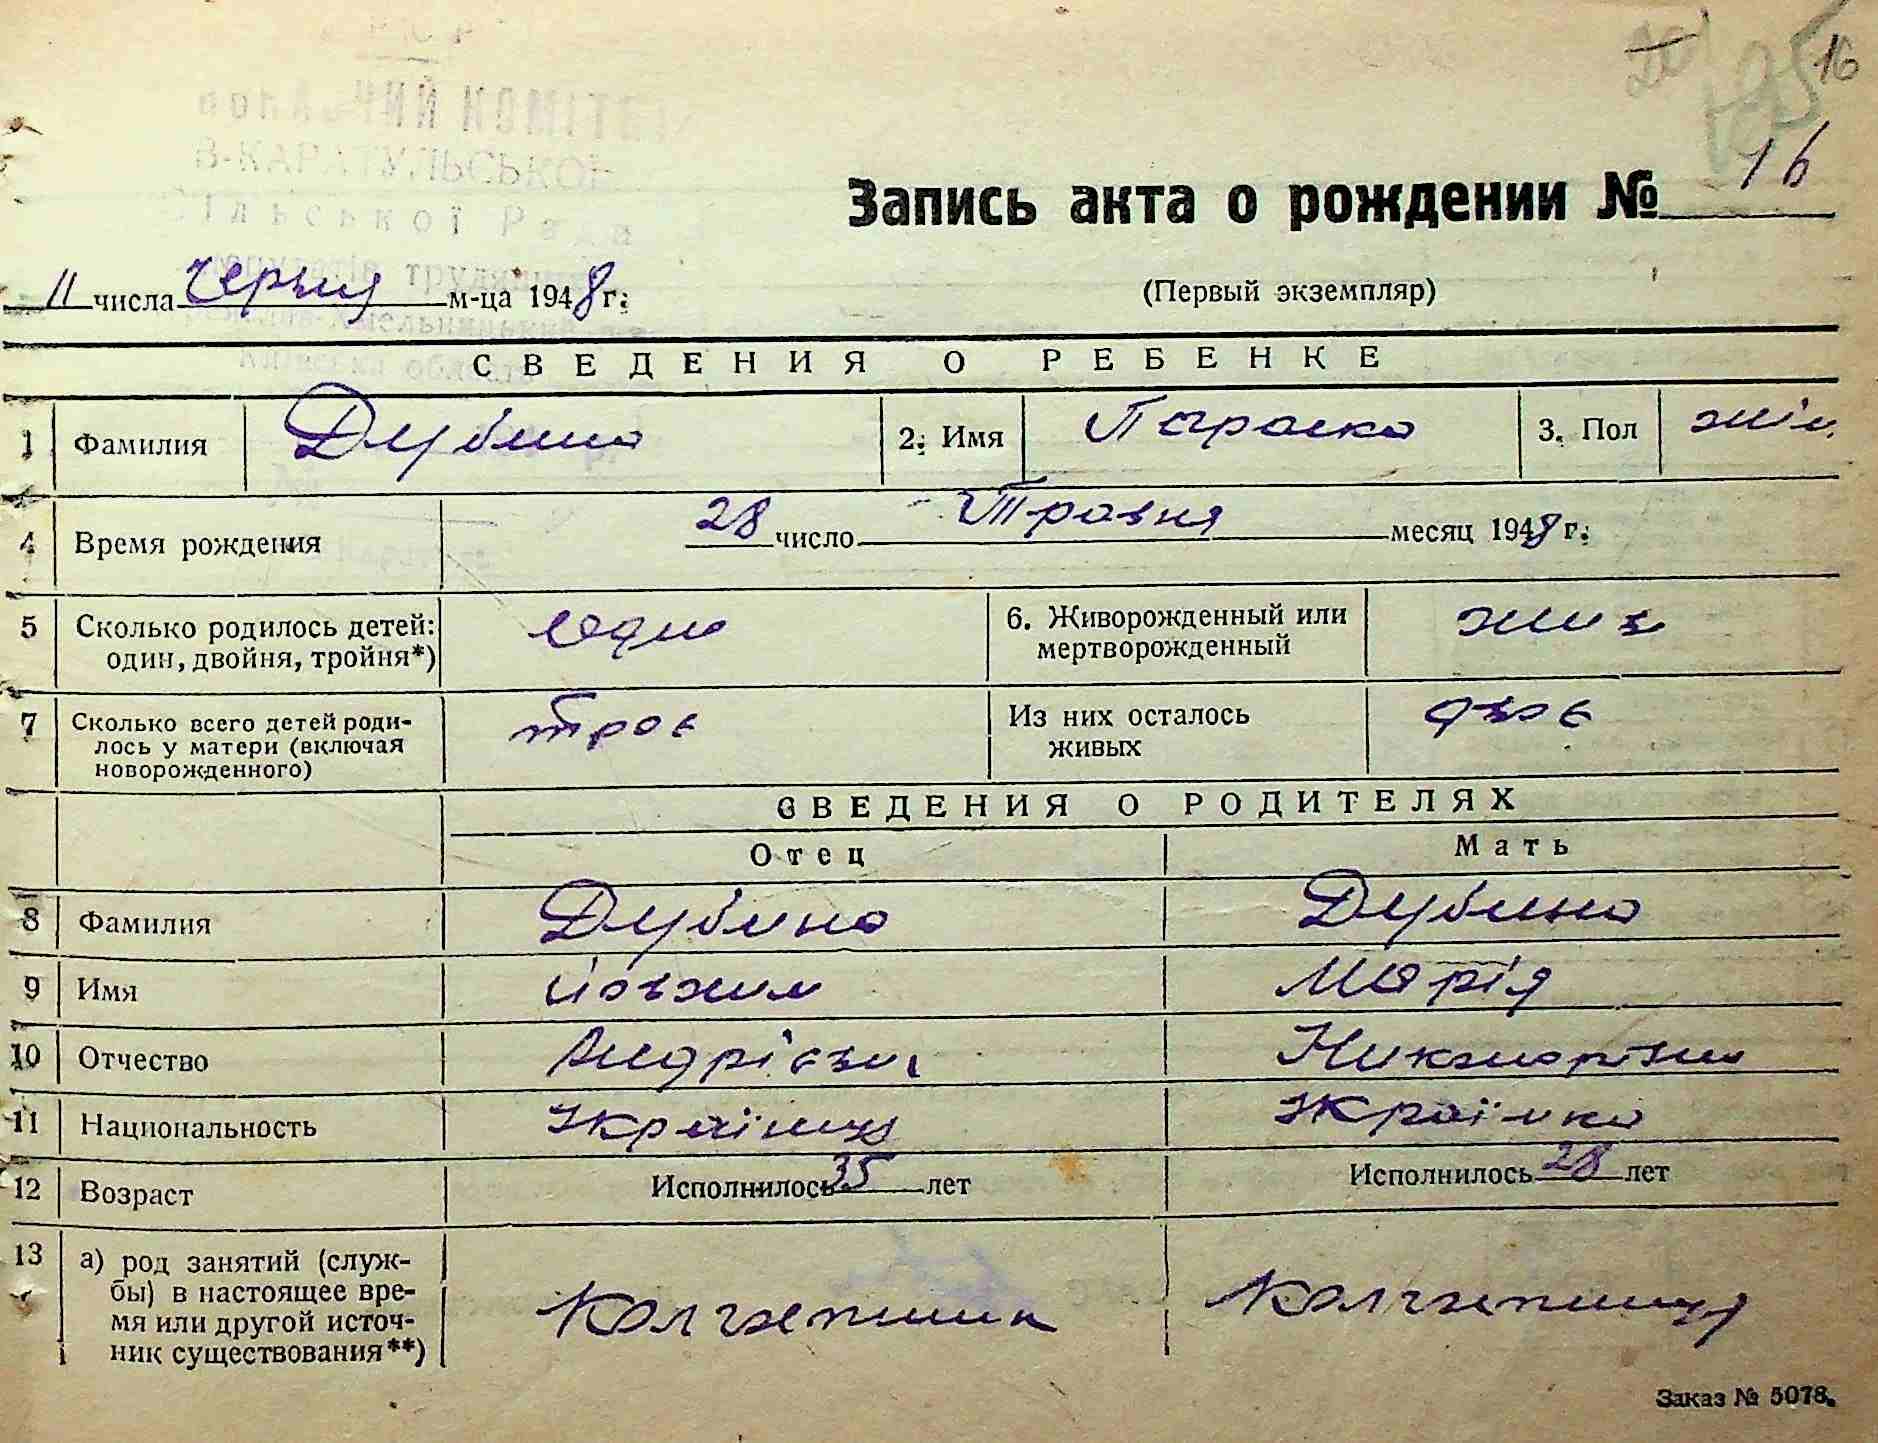 16
Запись акта о рождении № 16
11 числа червня м-ца 1948 г.
(Первый экземпляр)
СВЕДЕНИЯ О РЕБЕНКЕ
1 Фамилия Дубина 2. Имя Параска 3. Пол жін.
4 Время рождения 28 число Травня месяц 1948 г.
5 Сколько родилось детей: один, двойня, тройня*) Одно 6. Живорожденный или мертворожденный жив
7 Сколько всего детей роди-
лось у матери (включая
новорожденного) троє Из них осталось живых двоє
СВЕДЕНИЯ О РОДИТЕЛЯХ
Отец Мать
8 Фамилия Дубина Дубина
9 Имя Йовхим Марія
10 Отчество Андрієви
11 Национальность Українец Українка
12 Возраст Исполнилось 35 лет Исполнилось 28 лет
13 а) род занятий (служ-
бы) в настоящее вре-
мя или другой источ-
ник существования**) Колгоспник Колгоспниця
Заказ № 5078.